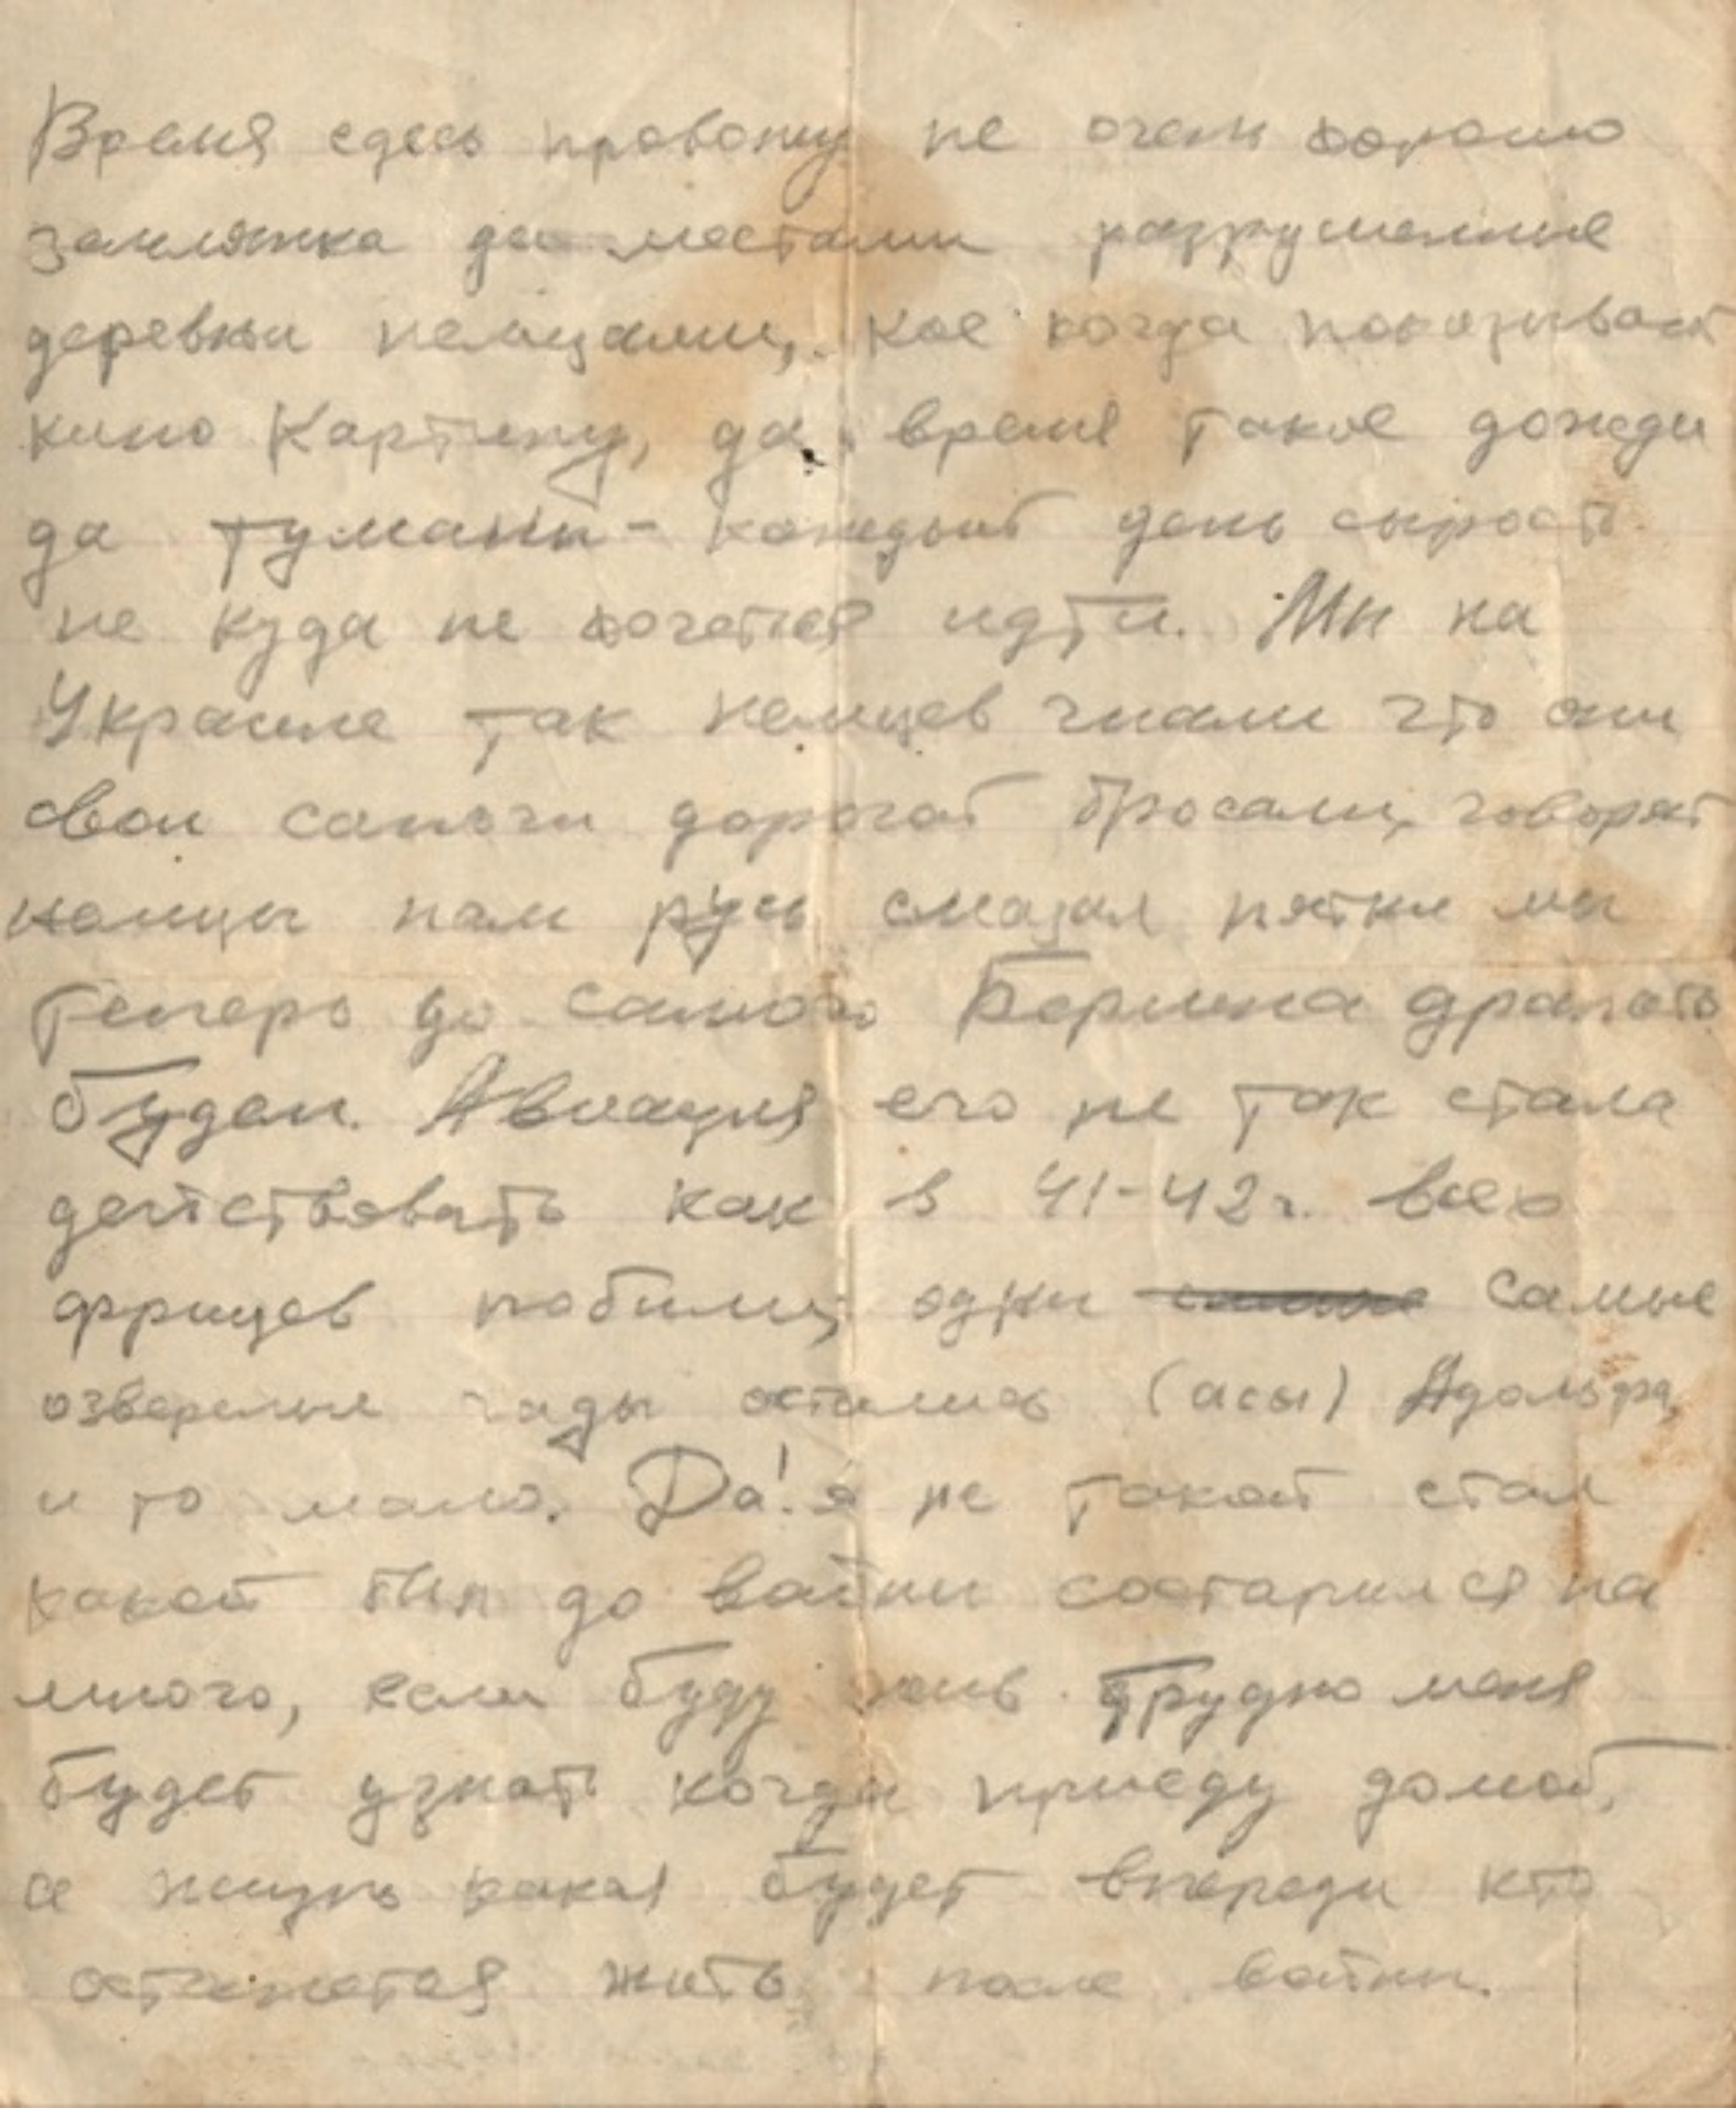 Время сдесь провожу не очень хорошо
землянка да местами разрушенные
деревни немцами, кое когда показывают
кино Картину, да время такое дожди
да туманы - каждый день сырость
не куда не хочется идти. Мы на
Украине так немцев гнали что они
свои сапоги дорогой бросали, говорят
немцы нам русь смазал пятки мы
теперь до самого Берлина драпать
будем. Авиация его не так стала
действовать как в 41-42 г. всех
фрицев побили, одни самые
озверелые гады остались (асы) Адольфа,
и то мало. Да! я не такой стал
какой был до войны состарился на
много, если буду жив трудно меня
будет узнать когда приеду домой,
а жизнь какая будет впереди кто
останется жить после войны.